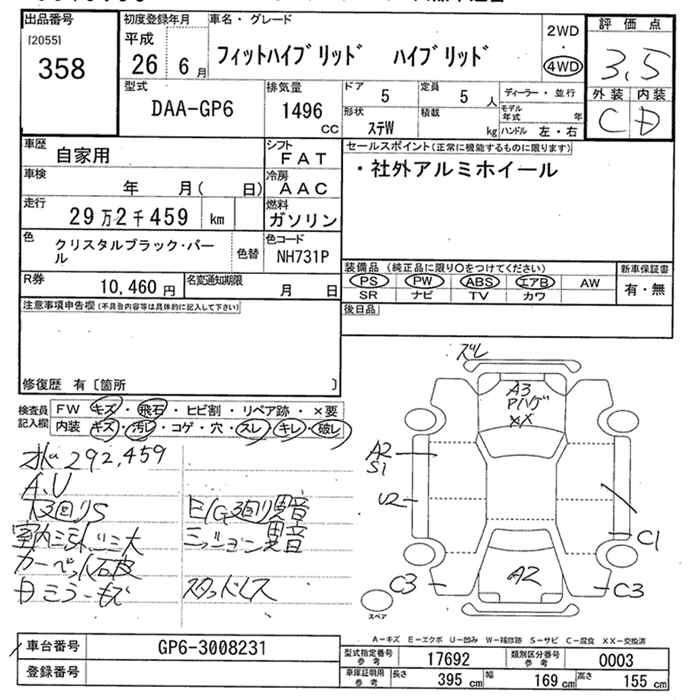 出品番号
[2055]
358
初度登録年月
平成
26年 6月
車名・グレード
フィットハイブリッド ハイブリッド
2WD
・
4WD
評価点
3,5
外装 内装
C D
型式
DAA-GP6
排気量
1496
cc
ドア
5
定員
5人
形状
ステW
積載
kg
ディーラー・並行
モデル年式 年
ハンドル 左・右
車歴
自家用
シフト
FAT
車検
年 月( 日)
冷房
AAC
走行
29万2千459 km
燃料
ガソリン
色
クリスタルブラック・パール
色替
色コード
NH731P
R券
10,460円
名変通知期限
月 日
セールスポイント(正常に機能するものに限ります)
・社外アルミホイール
装備品 (純正品に限り○をつけてください)
PS PW ABS エアB AW
SR ナビ TV カワ
新車保証書
有・無
後日品
注意事項申告欄(不具合内容等は具体的に記入して下さい)
修復歴 有〔箇所 〕
検査員記入欄
FW キズ・飛石・ヒビ割・リペア跡・×要
内装 キズ・汚レ・コゲ・穴・スレ・キレ・破レ
292,459
A,U
E/G回り異音
ミッション異音
スタッドレス
ズレ
A3
XX
A2
S1
U2
C1
C3
A2
C3
スペア
A-キズ E-エクボ U-凹み W-補修跡 S-サビ C-腐食 XX-交換済
車台番号
GP6-3008231
登録番号
型式指定番号
参考
17692
類別区分番号
参考
0003
車庫証明用
参考
長さ 395 cm
幅 169 cm
高さ 155 cm